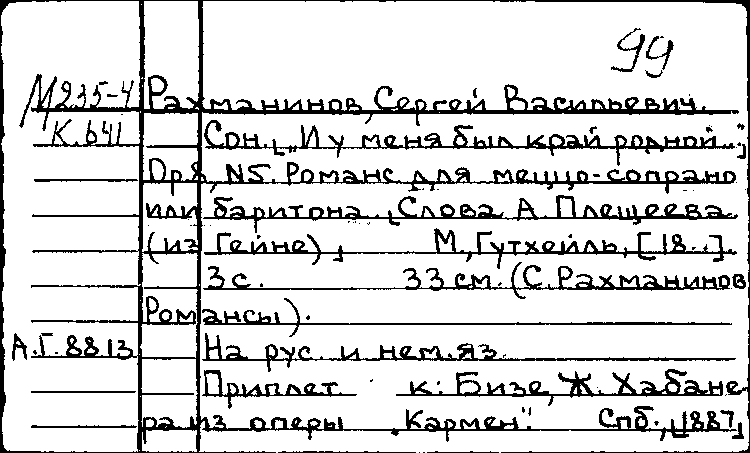 99
М235-4 Рахманинов, Сергей Васильевич.
К.641 Сон. [„И у меня был край родной..."]
Op.8, N5. Романс для меццо-сопрано
или баритона. [Слова А Плещеева
(из Гейне)] М., Гутхейль, [18..].
3 с. 33 см. (С. Рахманинов
Романсы).
А.Г. 8813 На рус. и нем. яз.
Приплет к: Бизе, Ж. Хабане-
ра из оперы „Кармен". Спб., [1887]